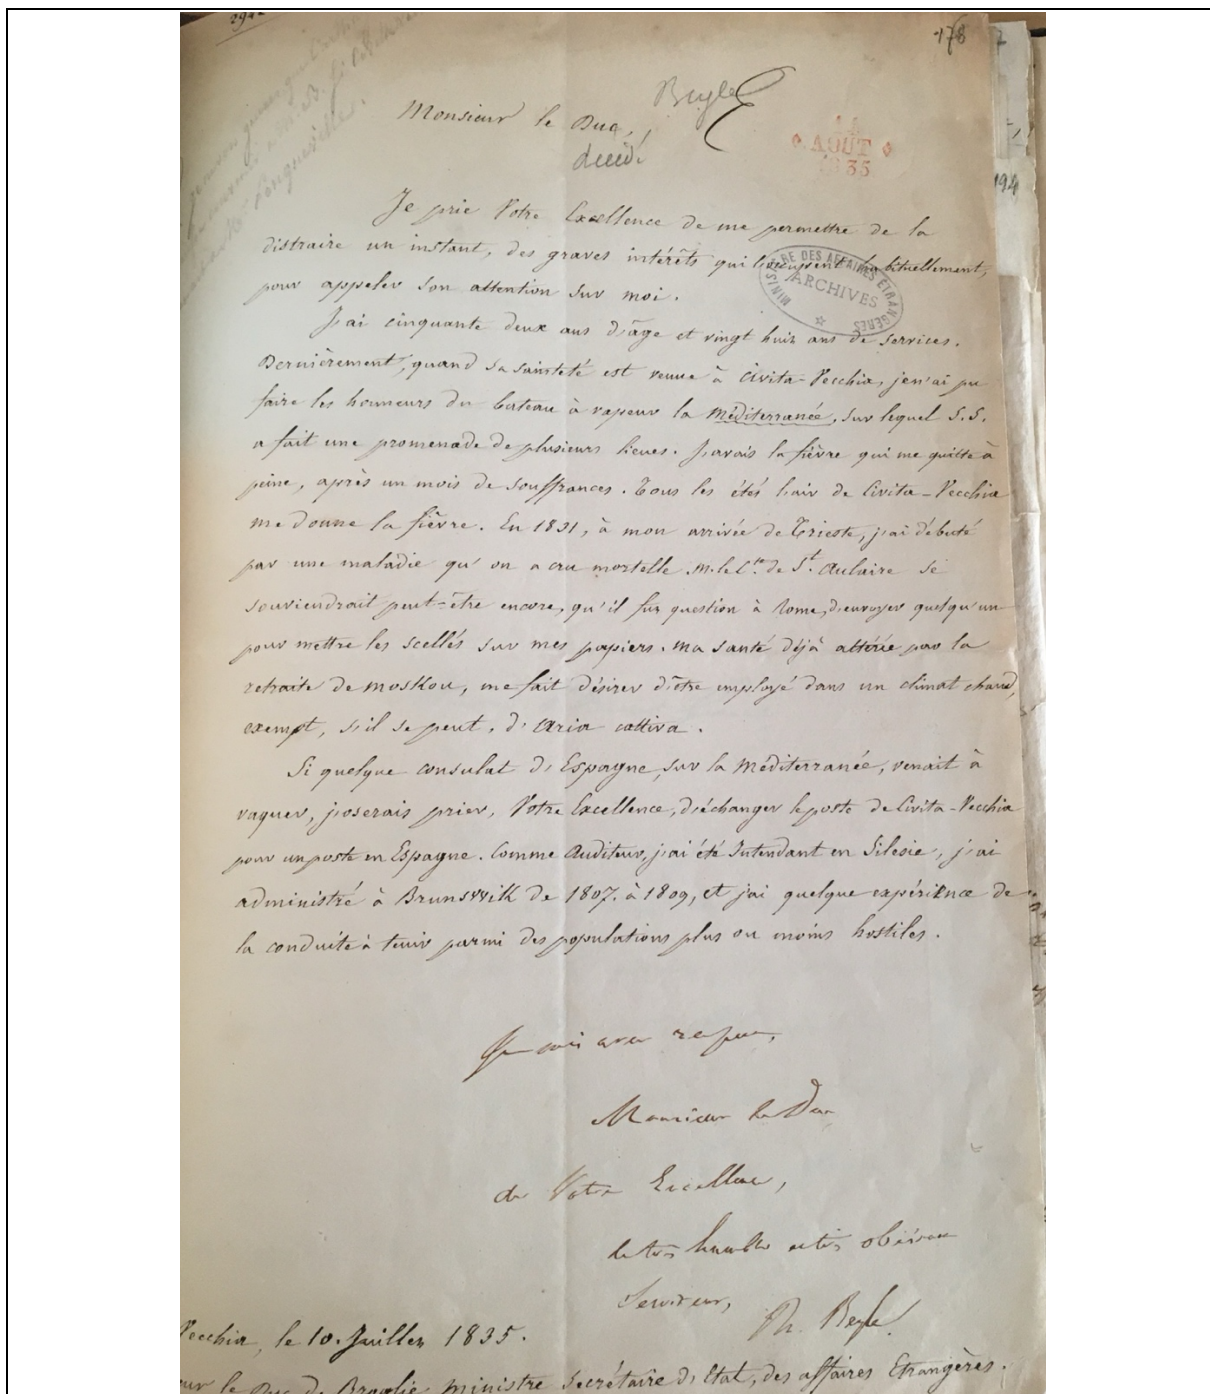 294
178
Beyle
Monsieur le Duc,
decidé
AOUT
1835
194
Je prie Votre Excellence de me permettre de la
distraire un instant, des graves intérêts qui l'occupent habituellement,
pour appeler son attention sur moi.
MINISTÈRE DES AFFAIRES ETRANGÈRES
ARCHIVES
J'ai cinquante deux ans d'âge et vingt huit ans de services.
Dernièrement, quand sa sainteté est venue à Civita-Vecchia, je n'ai pu
faire les honneurs du bateau à vapeur la Méditerranée, sur lequel S.S.
a fait une promenade de plusieurs lieues. J'avais la fièvre qui me quitte à
peine, après un mois de souffrances. Tous les étés l'air de Civita-Vecchia
me donne la fièvre. En 1831, à mon arrivée de Trieste, j'ai débuté
par une maladie qu'on a cru mortelle. M. le Cte. de St. Aulaire se
souviendrait peut-être encore, qu'il fut question à Rome, d'envoyer quelqu'un
pour mettre les scellés sur mes papiers. Ma santé déjà altérée par la
retraite de Moskou, me fait désirer d'être employé dans un climat chaud,
exempt, s'il se peut, d'Aria cattiva.
Si quelque consulat d'Espagne, sur la Méditerranée, venait à
vaquer, j'oserais prier, Votre Excellence, d'échanger le poste de Civita-Vecchia
pour un poste en Espagne. Comme Auditeur, j'ai été Intendant en Silesie, j'ai
administré à Brunswik de 1807. à 1809, et j'ai quelque expérience de
la conduite à tenir parmi des populations plus ou moins hostiles.
Je suis avec respect,
Monsieur le Duc
de Votre Excellence,
le très humble et très obéissant
Serviteur,
H. Beyle.
Vecchia, le 10. Juillet 1835.
le Duc de Broglie ministre Secrétaire d'Etat, des affaires Etrangères.